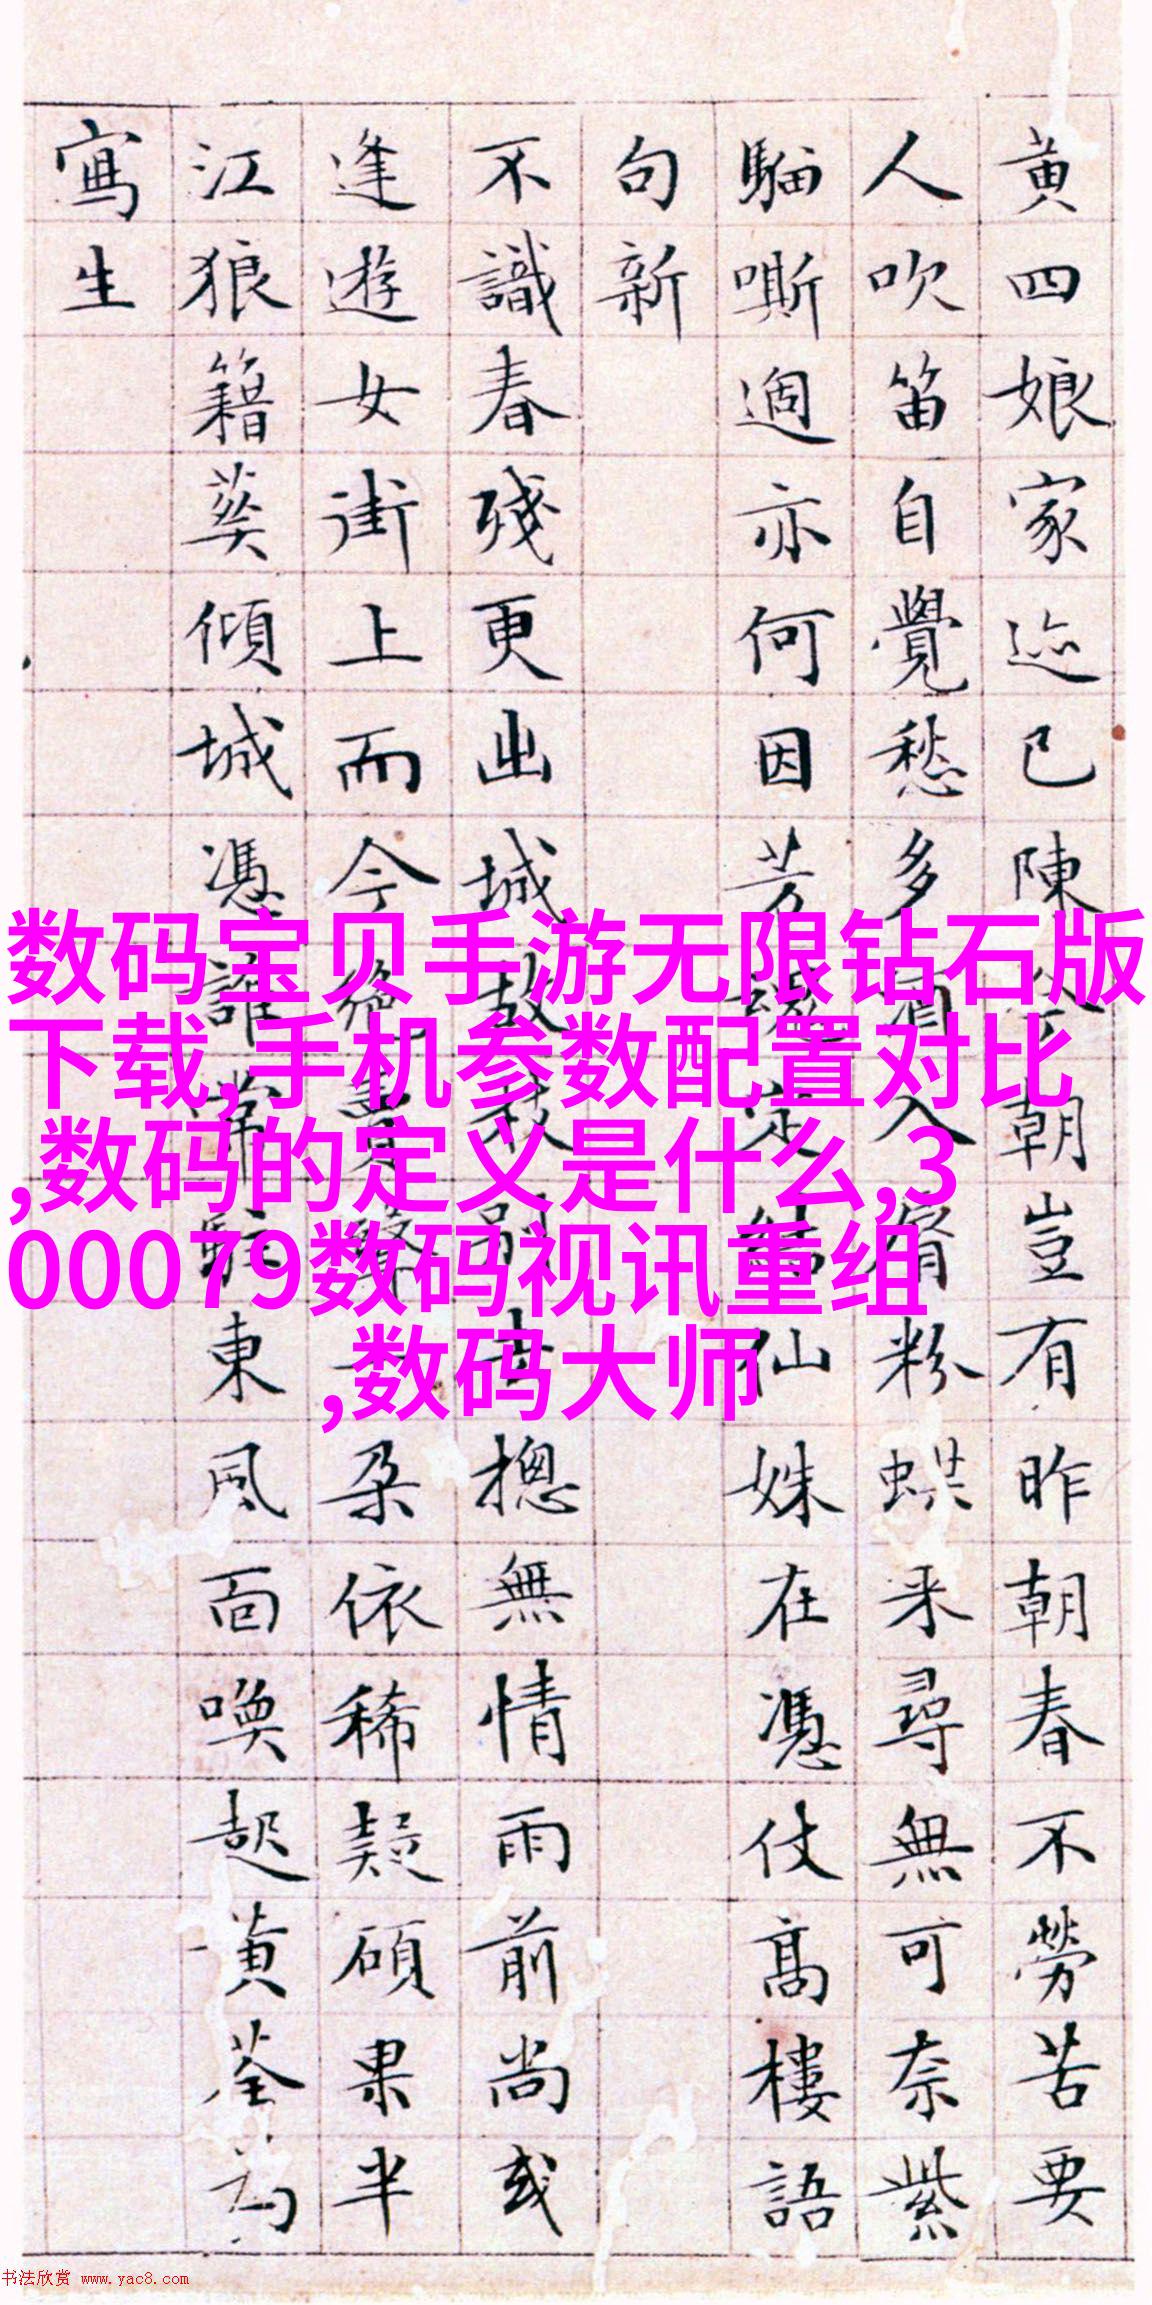 黄四娘家迹已陳朝豈有昨朝春不勞苦要
人吹笛自覺愁多入粉蝶来尋無可奈紫
騮嘶過亦何因芳定結仙姝在憑仗高樓語
句新
不識春殘更出城故枝別去摠無情雨前尚或
逢遊女街上而今絶賣聲一朵依稀疑碩果半
江狼籍葵傾城憑誰常駐東風面喚起黄荃為
寫生
数码宝贝手游无限钻石版
下载,手机参数配置对比
,数码的定义是什么,3
00079数码视讯重组
,数码大师
书法欣赏 www.yac8.com